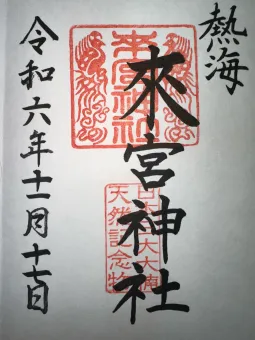 熱海
來宮神社
來宮神社
天然記念物
令和六年十一月十七日